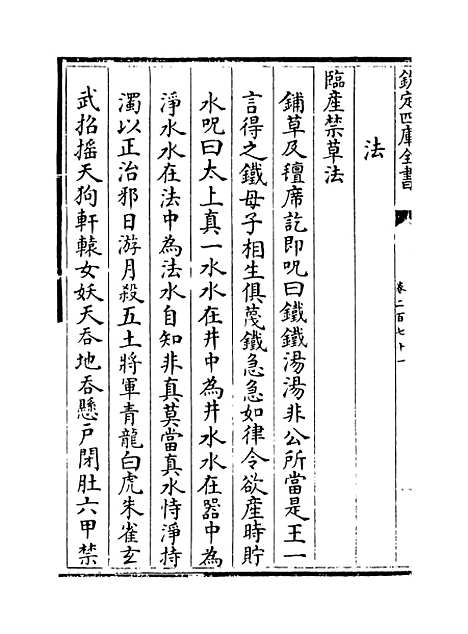 欽定四庫全書
卷二百七十一
法
臨産禁草法
鋪草及氊席訖即呪曰鐵鐵湯湯非公所當是王一
言得之鐵母子相生俱蔑鐵急急如律令欲産時貯
水呪曰太上真一水水在井中為井水水在器中為
淨水水在法中為法水自知非真莫當真水恃淨持
濁以正治邪日游月殺五土將軍青龍白虎朱雀玄
武招摇天狗軒轅女妖天吞地吞懸戸閉肚六甲禁